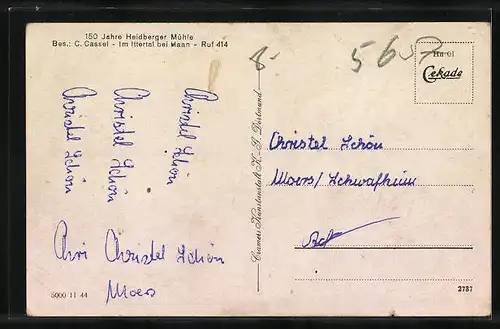 150 Jahre Heidberger Mühle
Bes.: C. Cassel - Im Ittertal bei Haan - Ruf 414
8-
5657
Hn 01
Cekade
Christel Schön
Christel Schön
Christel Schön
Chri Christel Schön
Moers
Cramers Kunstanstalt K.-G. Dortmund
Christel Schön
Moers/Schwafheim
5000 11 44
2787